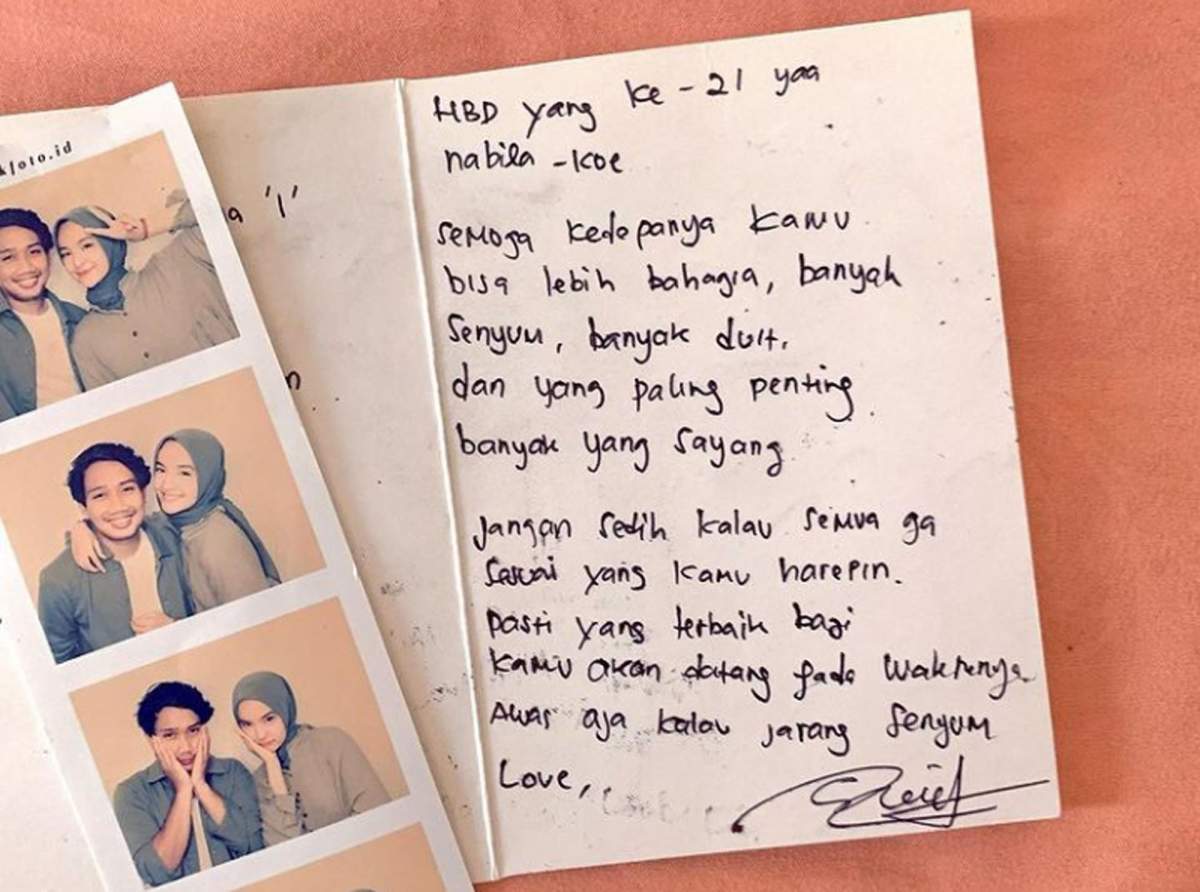 kfoto.id
a 'I'
n
HBD yang ke-21 yaa
nabila-koe
semoga kedepanya kamu
bisa lebih bahagia, banyak
senyum, banyak duit.
dan yang paling penting
banyak yang sayang
jangan sedih kalau semua ga
sesuai yang kamu harepin.
pasti yang terbaik bagi
kamu akan datang pada waktunya
Awas aja kalau jarang senyum
Love,,